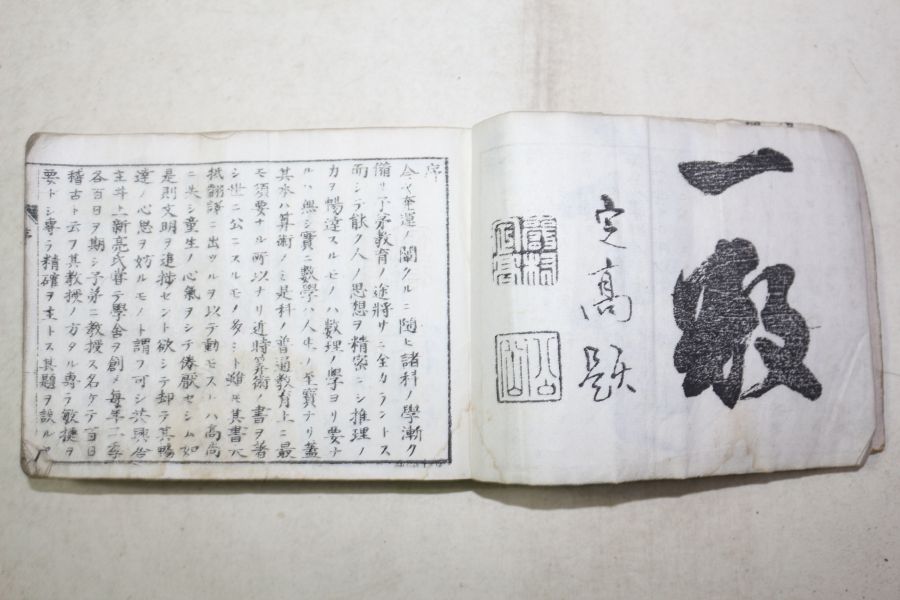 一般
定高題
序
今ヤ奎運ノ闡クルニ随ヒ諸科ノ學漸ク
備リ子弟教育ノ途將サニ至カラントス
而シテ能ク人ノ思想ヲ精密ニシ推理ノ
力ヲ暢達スルモノハ数理ノ學ヨリ要ナ
ルハ無シ實ニ數學ハ人生ノ至寶ナリ蓋
其本ハ算術ノミ是科ノ普通教育上ニ最
モ須要ナル所以ナリ近時算術ノ書ヲ著
シ世ニ公ニスルモノ多シト雖モ其書六
拔翻譯ニ出ツルヲ以テ動モスレハ高尚
ニ失シ童生ノ心氣ヲシテ倦厭セシム如
是則文明ヲ追捗セント欲シ却テ其暢
達ノ心思ヲ妨ルモノト謂フ可シ
主斗上新亮氏嘗テ學舎ヲ創メ毎年二季
各百日ヲ期シ子弟ニ教授ス名ケテ百日
稽古ト云フ其教授ノ方タル專ラ敏捷ヲ
要トシ專ラ精確ヲ主トス其題ヲ設ル